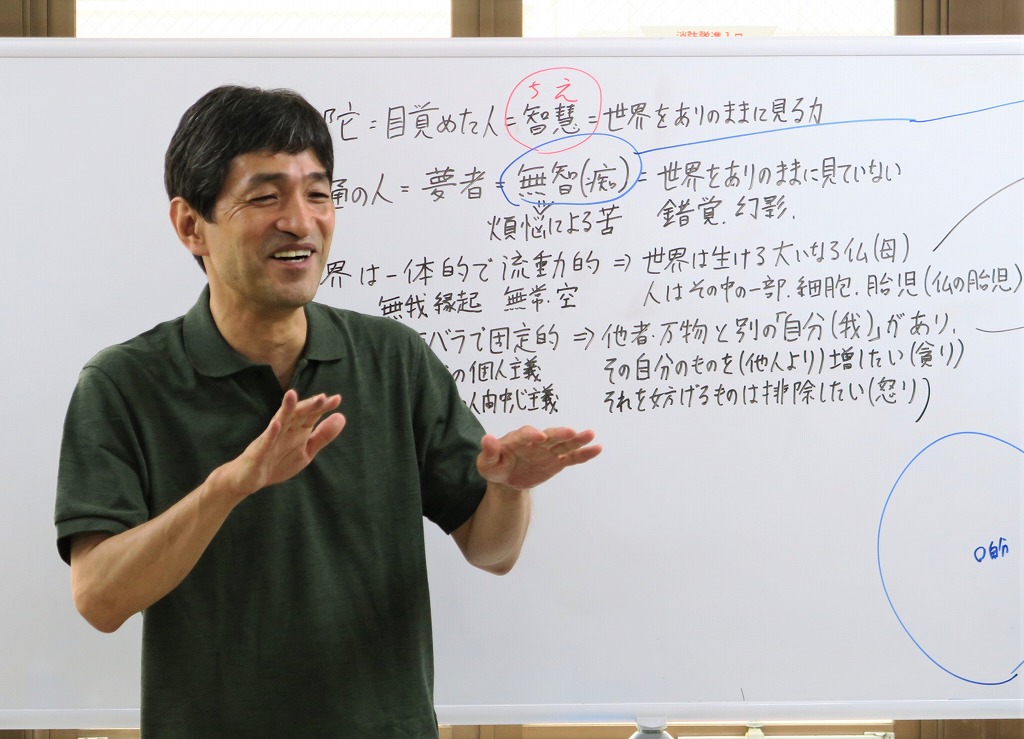 ちえ
陀=目覚めた人=智慧=世界をありのままに見る力
通の人=夢者=無智(痴)=世界をありのままに見ていない
煩悩による苦 錯覚.幻影.
界は一体的で流動的⇒世界は生ける大いなる仏(母)
無我 縁起 無常.空 人はその中の一部.細胞.胎児(仏の胎児)
バラで固定的⇒他者.万物と別の「自分(我)」があり.
の個人主義 その自分のものを(他人より)増したい(貪り)
人間中心主義 それを妨げるものは排除したい(怒り)
自分